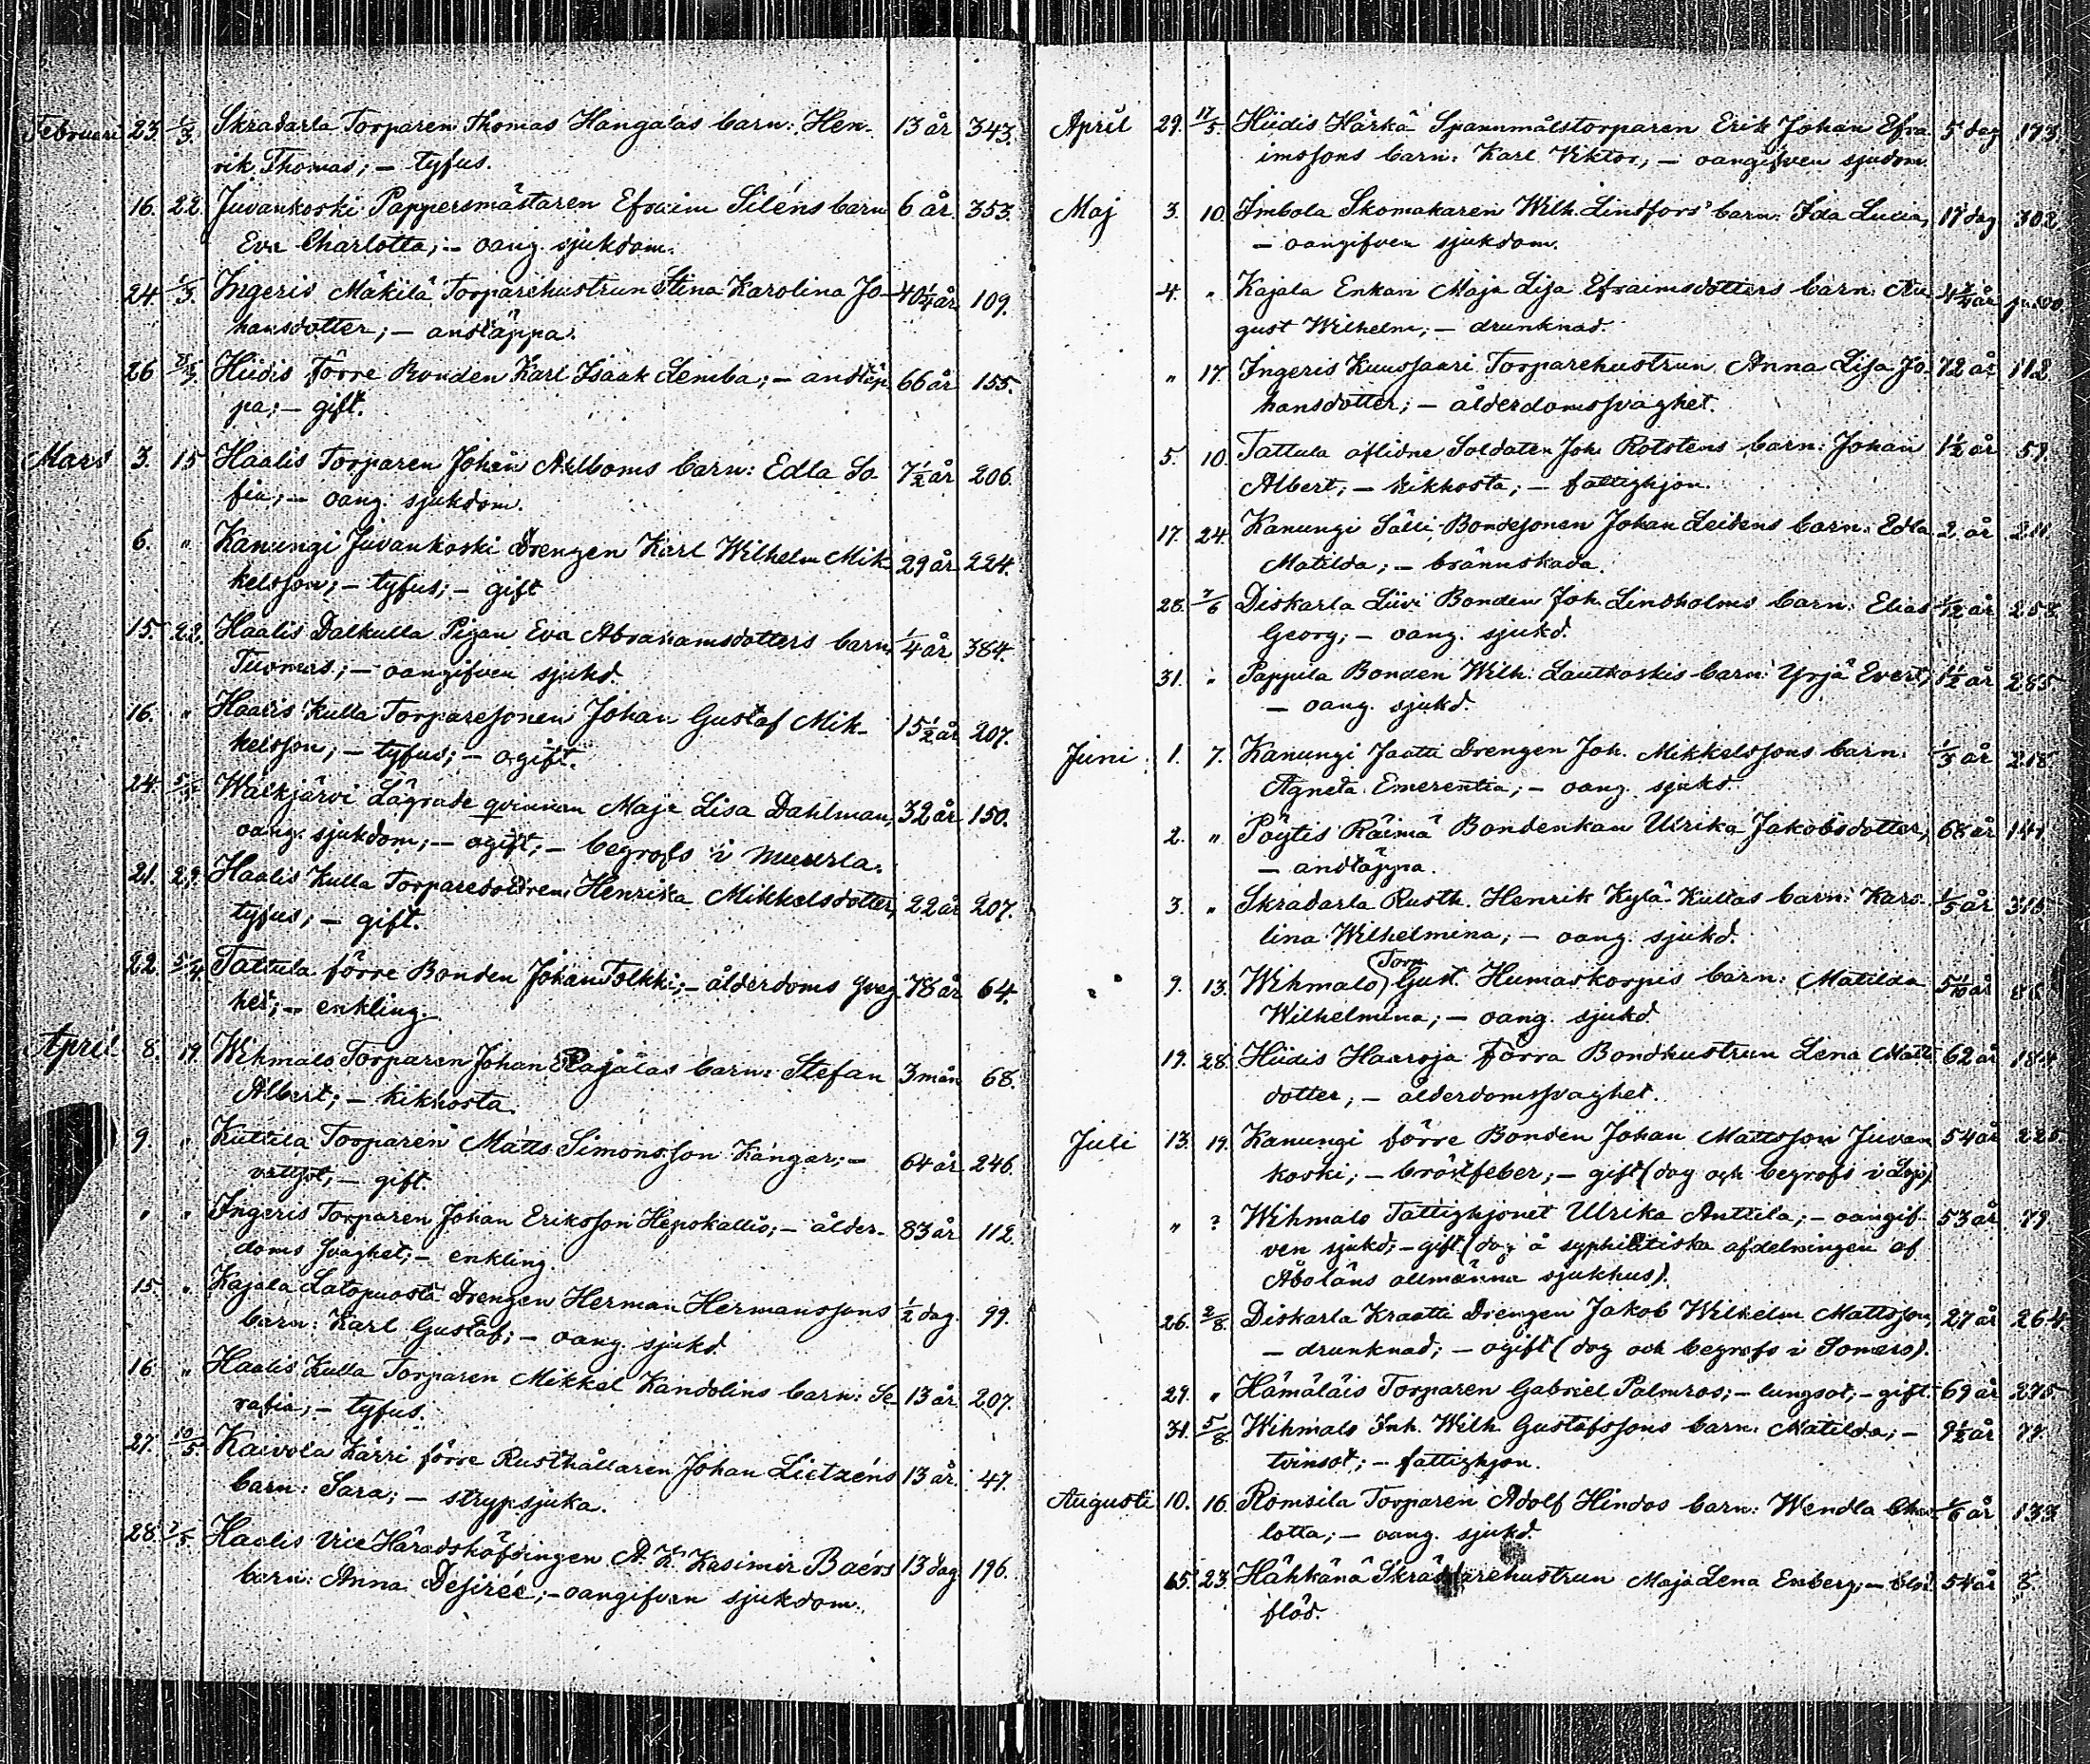 Februari 23. 1/3. Skradarla Torparen Thomas Hangalas barn: Hen- 13 år 343.
rik Thomas; – tyfus.
16. 22. Juvankoski Pappersmästaren Efraim Siléns barn 6 år. 353.
Eva Charlotta; – oang. sjukdom.
24 1/3. Ingeris Mäkilä Torparehustrun Stina Karolina Jo- 40 1/4 år 109.
hansdotter; – andtäppa.
26 Hiidis förre Bonden Karl Isaak Lemba; – andtäp 66 år 155.
pa; – gift.
Mars 3. 15 Haalis Torparen Johan Ahlboms barn: Edla So- 7 1/2 år 206.
fia; – oang. sjukdom.
6. " Kanungi Juvankoski Drengen Karl Wilhelm Mik- 29 år 224.
kelsson; – tyfus; – gift
15. 22. Haalis Dalkulla Pigan Eva Abrahamsdotters barn 1/4 år 384.
Tuomas; – oangifven sjukd.
16. " Haalis Kulla Torparesonen Johan Gustaf Mik- 15 1/2 år 207.
kelsson; – tyfus; – ogift.
24. 5/4. Walkjärvi Lägrade qvinnan Maja Lisa Dahlman, 32 år 150.
oang. sjukdom; – ogift; – begrofs i Muurla.
21. 29. Haalis Kulla Torparedottren Henrika Mikkelsdotter, 22 år 207.
tyfus; – gift.
22. 5/4 Tattula förre Bonden Johan Tolkki; – ålderdoms svag- 78 år 64.
het; – enkling.
April 8. 19. Wihmalo Torparen Johan Rajalas barn: Stefan 3 mån 68.
Albert; – kikhosta.
9. " Kuttila Torparen Matts Simonsson Kangar; – 64 år 246.
vattsot; – gift.
" " Ingeris Torparen Johan Eriksson Hepokallio; – ålder- 83 år 112.
doms svaghet; – enkling.
15. " Kajala Latopuosta Drengen Herman Hermanssons 1/2 dag. 99.
barn: Karl Gustaf; – oang. sjukd
16. " Haalis Kulla Torparen Mikkel Kandolins barn: Se- 13 år. 207.
rafia; – tyfus.
27. 10/5. Kaivola Kärri förre Rusthållaren Johan Lietzéns 13 år. 47.
barn: Sara; – strypsjuka.
28. 7/5. Haalis Vice Häradshöfdingen A. K. Kasimir Baérs 13 dag 196.
barn: Anna Desirée; – oangifven sjukdom.
April 29. 17/5. Hiidis Härkä Spannmålstorparen Erik Johan Efra- 5 dag 173.
imssons barn: Karl Viktor; – oangifven sjukdom.
Maj 3. 10. Imbola Skomakaren Wilh. Lindfors' barn: Ida Lucia, 17 dag 302.
– oangifven sjukdom.
4. " Kajala Enkan Maja Lisa Efraimsdotters barn: Au- 4 3/4 år
gust Wilhelm; – drunknad.
" 17. Ingeris Kuussaari Torparehustrun Anna Lisa Jo- 72 år 112.
hansdotter; – ålderdomssvaghet.
5. 10. Tattula aflidne Soldaten Joh. Rotstens barn: Johan 1 1/2 år 59
Albert; – kikhosta; – fattighjon.
17. 24. Kanungi Sälli Bondesonen Johan Leidens barn: Edla 2 år 211
Matilda; – brännskada.
28. 7/6 Diskarla Liivi Bonden Joh. Lindholms barn: Elias 1/12 år 258
Georg; – oang. sjukd.
31. " Pappila Bonden Wilh. Lautkoskis barn: Yrjä Evert, 1 1/2 år 285
– oang. sjukd.
Juni 1. 7. Kanungi Jaatti Drengen Joh. Mikkelssons barn: 1/3 år 218
Agneta Emerentia; – oang. sjukd.
2. " Pöytis Räimä Bondenkan Ulrika Jakobsdotter, 68 år 141
– andtäppa.
3. " Skradarla Rusth. Henrik Kylä-Kullas barn: Karo- 1/5 år 315
lina Wilhelmina; – oang. sjukd.
Torp.
9. 13. Wihmalo Gust. Humaskorpis barn: Matilda 5 1/10 år 86
Wilhelmina; – oang. sjukd
19. 28. Hiidis Haaroja Förra Bondhustrun Lena Matts- 62 år 184
dotter; – ålderdomssvaghet.
Juli 13. 19. Kanungi förre Bonden Johan Mattsson Juvan- 54 år 225
koski; – bröstfeber; – gift (dog och begrofs i Lojo)
" ? Wihmalo Fattighjonet Ulrika Anttila; – oangif- 53 år 79
ven sjukd; – gift (dog å syphilitiska afdelningen af
Åbo läns allmänna sjukhus).
26. 2/8. Diskarla Kraatti Drengen Jakob Wilhelm Mattsson, 27 år 264.
– drunknad; – ogift (dog och begrofs i Somero).
29. " Hämäläis Torparen Gabriel Palmros; – lungsot; – gift. 69 år 275
31. 5/8. Wihmalo Inh. Wilh. Gustafssons barn: Matilda; – 9 1/2 år 77
tvinsot; – fattighjon.
Augusti 10. 16. Romsila Torparen Adolf Hindos barn: Wendla Char- 1/6 år 133
lotta; – oang. sjukd.
15. 23. Hähkänä Skräddarehustrun Maja Lena Enberg; – blod- 54 år 8.
flöd.